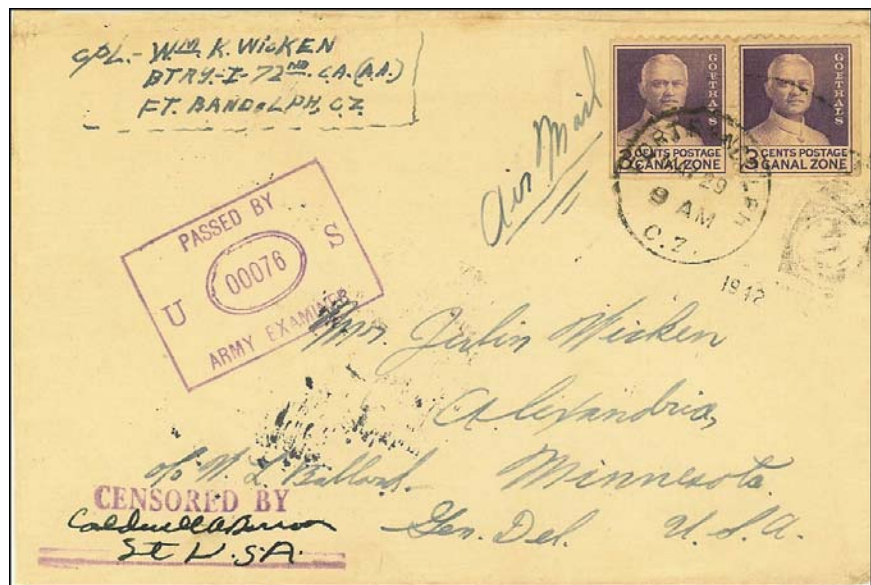 CPL.- WM. K. WICKEN
BTRY-I-72ND. C.A.(A.A.)
FT. RANDOLPH, C.Z.
Air Mail
GOETHALS
3 CENTS POSTAGE
CANAL ZONE
GOETHALS
3 CENTS POSTAGE
CANAL ZONE
FORT RANDOLPH
29
9 AM
C.Z.
1942
PASSED BY
U 00076 S
ARMY EXAMINER
Wicken
Alexandria,
Minnesota
c/o W. L.
Gen. Del. U.S.A.
CENSORED BY
U.S.A.